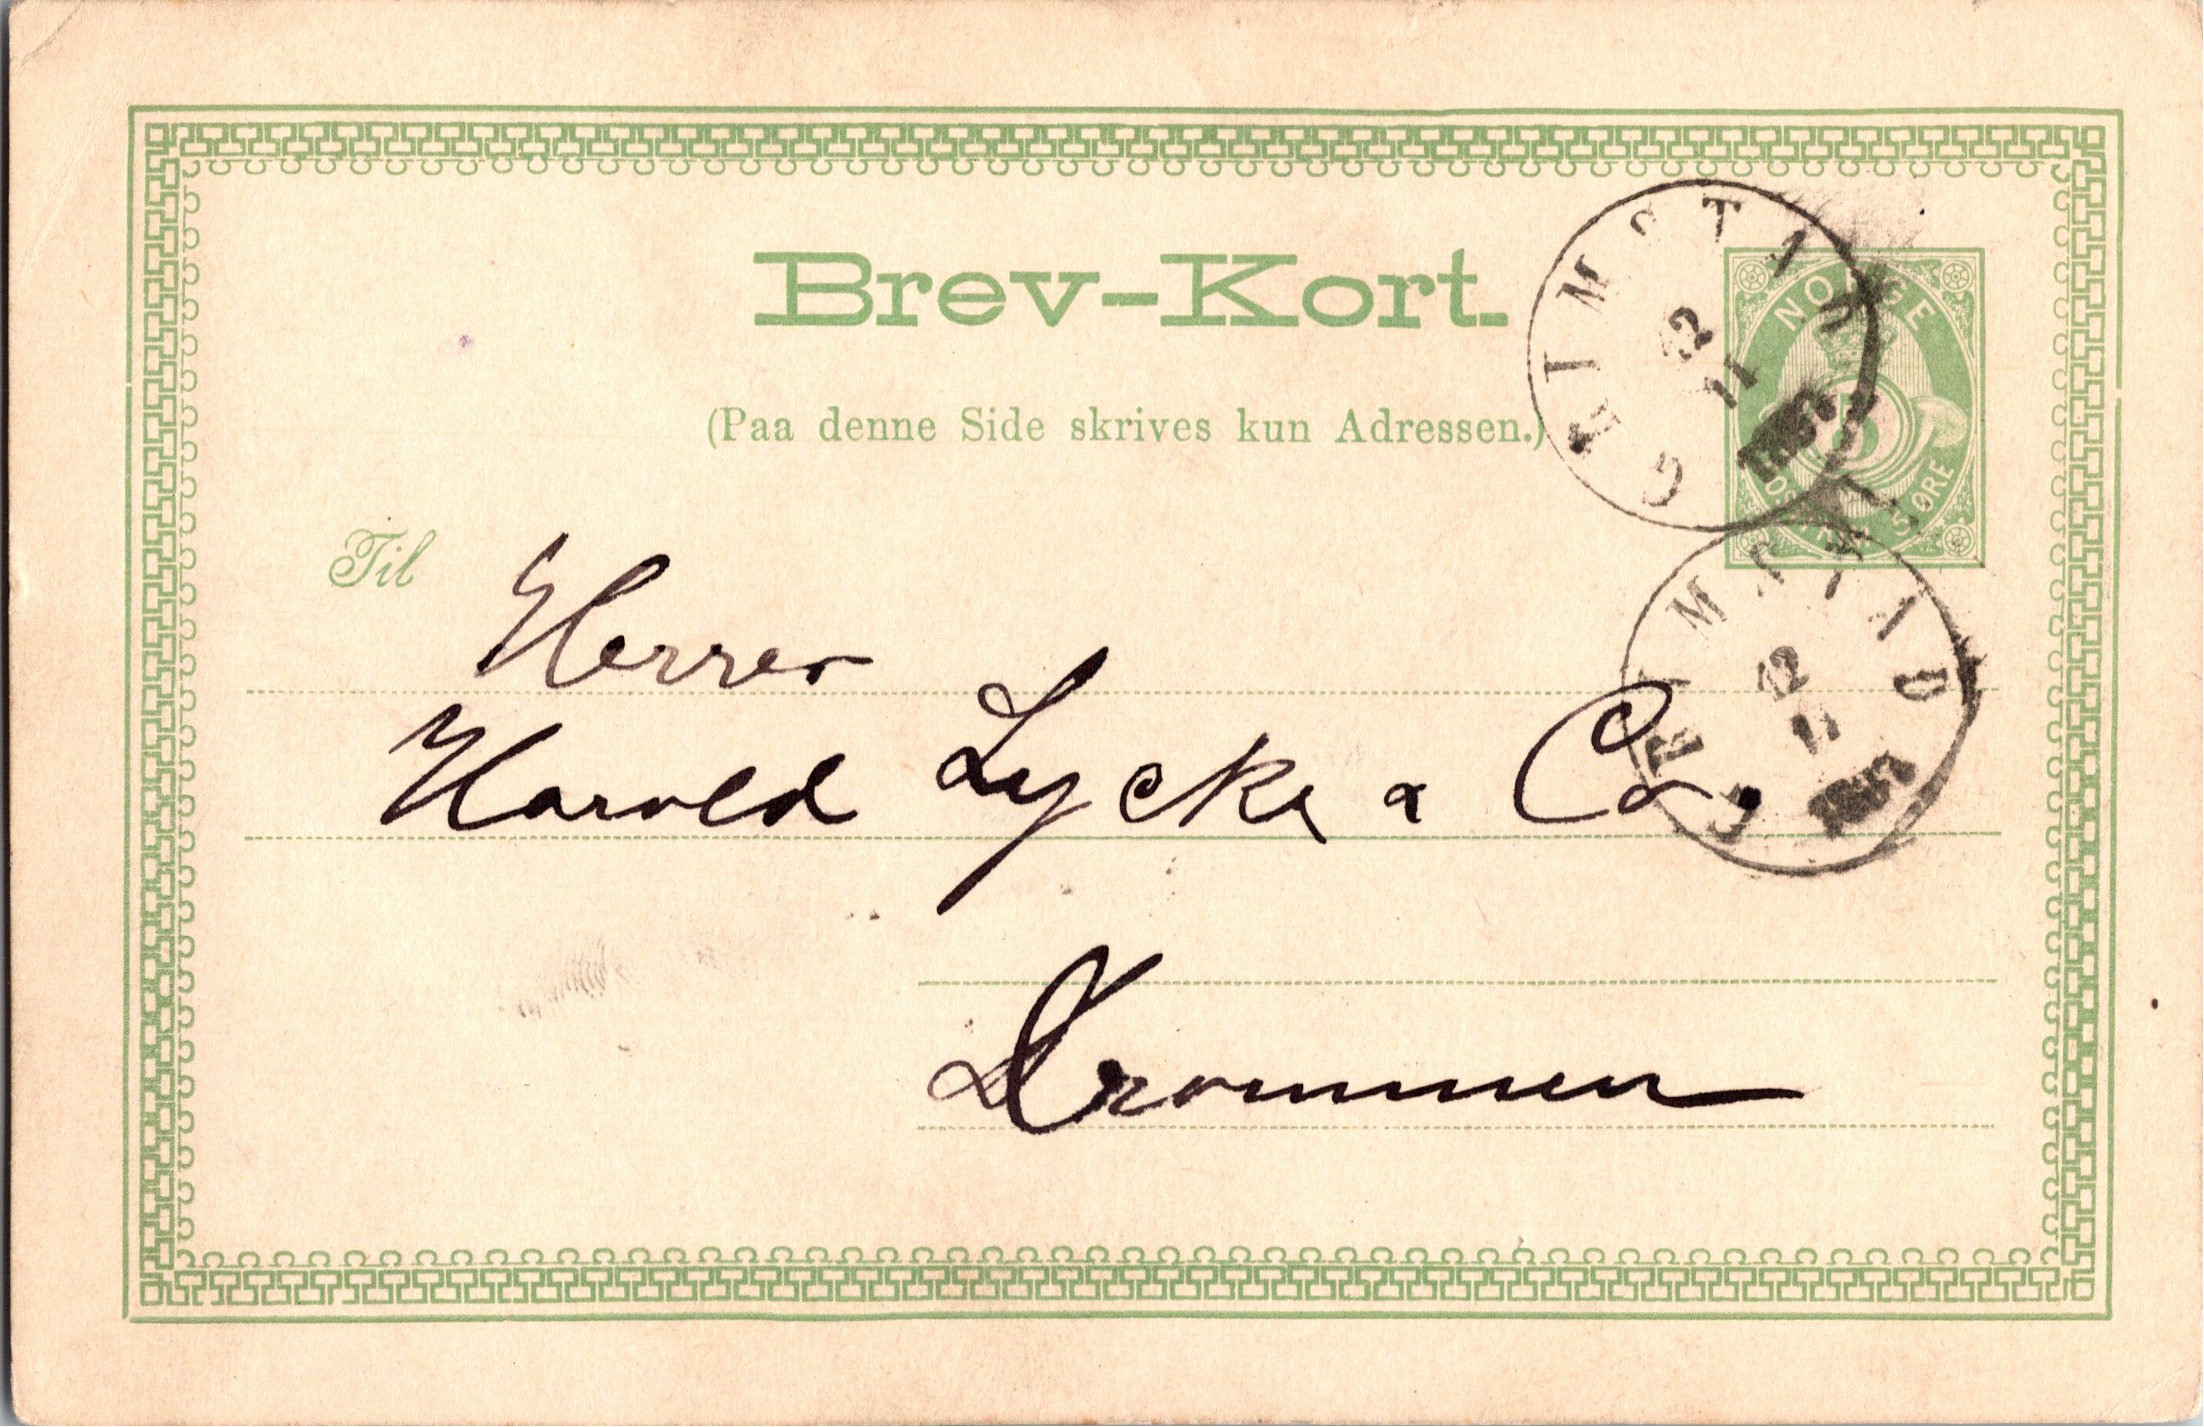 Brev-Kort.
(Paa denne Side skrives kun Adressen.)
NORGE
5
POSTFRIM 5 ØRE
GRIMSTAD
12
11
GRIMSTAD
12
Til
Herrer
Harald Lycke & Co.
Drammen